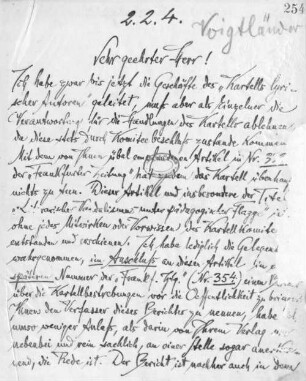 254
2.2.4.
Voigtländer
Sehr geehrter Herr!
Ich habe zwar bis jetzt die Geschäfte des "Kartells lyri-
scher Autoren" geleitet, muß aber als Einzelner die
Verantwortung für die Handlungen des Kartells ablehnen,
da diese stets durch Komiteebeschluß zustande kommen.
Mit dem von Ihnen übel empfundenen Artikel in Nr.
der "Frankfurter Zeitung" hat das Kartell überhaupt
nichts zu tun. Dieser Artikel und insbesondere der Titel
Kandalismus unter pädagogischer Flagge" ist
ohne jedes Mitwirken oder Vorwissen des Kartellkomitees
entstanden und erschienen. Ich habe lediglich die Gelegenheit
wahrgenommen, im Anschluß an diesen Artikel in einer
späteren Nummer der Frankf. Ztg. (Nr. 354) einen Bericht
über die Kartellbestrebungen vor die Öffentlichkeit zu bringen.
Ihnen den Verfasser dieses Berichtes zu nennen, habe ich
umso weniger Anlaß, als darin von Ihrem Verlag nur
nebenbei und rein sachlich, an einer Stelle sogar
die Rede ist. Der Bericht ist nachher auch in dem